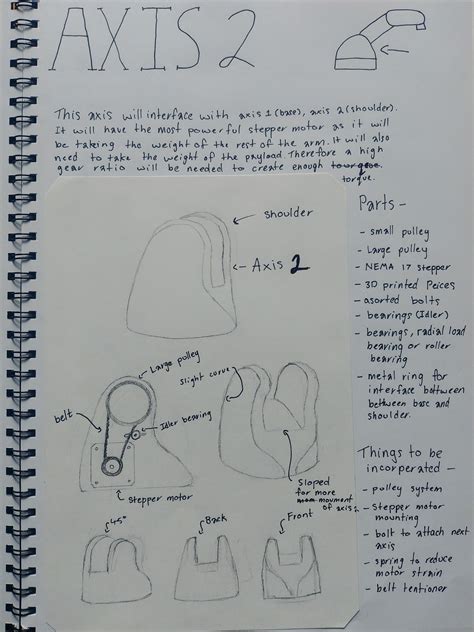 AXIS 2
This axis will interface with axis 1 (base), axis 2 (shoulder).
It will have the most powerful stepper motor as it will
be taking the weight of the rest of the arm. It will also
need to take the weight of the payload. Therefore a high
gear ratio will be needed to create enough tourqe.
torque.
shoulder
Axis 2
Large pulley
belt
Idler bearing
Stepper motor
slight curve
Sloped
for more
mom movment
of axis 2
45°
Back
Front
Parts -
- small pulley
- Large pulley
- NEMA 17 stepper
- 3D printed Peices
- asorted bolts
- bearings (Idler)
- bearings, radial load
bearing or roller
bearing
- metal ring for
interface bottween
between base and
shoulder.
Things to be
incorperated -
- pulley system
- Stepper motor
mounting
- bolt to attach next
axis
- spring to reduce
motor strain
- belt tentioner